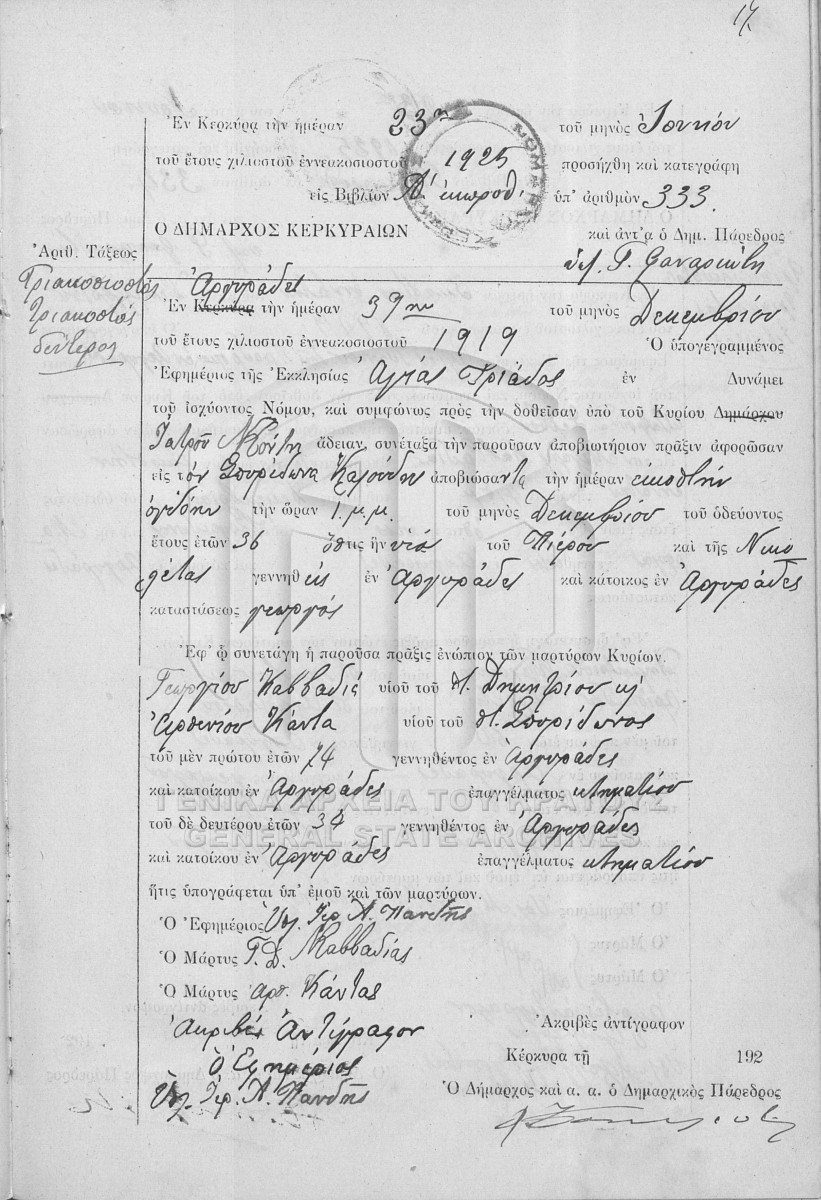 17.
Ἐν Κερκύρᾳ τὴν ἡμέραν 23ην τοῦ μηνὸς Ἰουνίου
τοῦ ἔτους χιλιοστοῦ ἐννεακοσιοστοῦ 1925 προσήχθη καὶ κατεγράφη
εἰς Βιβλίον Α΄ ἐκπροθ. ὑπ' ἀριθμὸν 333.
Ο ΔΗΜΑΡΧΟΣ ΚΕΡΚΥΡΑΙΩΝ καὶ ἀντ'α ὁ Δημ. Πάρεδρος
Ἀριθ. Τάξεως
ὑπ. Γ. Φαναριώτη
Τριακοσιοστὸς
τριακοστὸς
δεύτερος
Ἀργυράδες
Ἐν Κερκύρᾳ τὴν ἡμέραν 39ην τοῦ μηνὸς Δεκεμβρίου
τοῦ ἔτους χιλιοστοῦ ἐννεακοσιοστοῦ 1919 Ὁ ὑπογεγραμμένος
Ἐφημέριος τῆς Ἐκκλησίας Ἁγίας Τριάδος ἐν Δυνάμει
τοῦ ἰσχύοντος Νόμου, καὶ συμφώνως πρὸς τὴν δοθεῖσαν ὑπὸ τοῦ Κυρίου Δημάρχου
Ἰατροῦ Μόντη ἄδειαν, συνέταξα τὴν παροῦσαν ἀποβιωτήριον πρᾶξιν ἀφορῶσαν
εἰς τὸν Σπυρίδωνα Καλούδην ἀποβιώσαντα τὴν ἡμέραν εἰκοστὴν
ὀγδόην τὴν ὥραν 1 μ.μ. τοῦ μηνὸς Δεκεμβρίου τοῦ ὁδεύοντος
ἔτους ἐτῶν 36 ὅστις ἦν υἱὸς τοῦ Πιέρου καὶ τῆς Νικο
λέτας γεννηθεὶς ἐν Ἀργυράδες καὶ κάτοικος ἐν Ἀργυράδες
καταστάσεως γεωργός
Ἐφ' ᾧ συνετάγη ἡ παροῦσα πρᾶξις ἐνώπιον τῶν μαρτύρων Κυρίων.
Γεωργίου Καββαδία υἱοῦ τοῦ π. Δημητρίου κ
Ἀρσενίου Κάντα υἱοῦ τοῦ π. Σπυρίδωνος
τοῦ μὲν πρώτου ἐτῶν 74 γεννηθέντος ἐν Ἀργυράδες
καὶ κατοίκου ἐν Ἀργυράδες ἐπαγγέλματος κτηματίου
ΓΕΝΙΚΑ ΑΡΧΕΙΑ ΤΟΥ ΚΡΑΤΟΥΣ
τοῦ δὲ δευτέρου ἐτῶν 34 γεννηθέντος ἐν Ἀργυράδες
GENERAL STATE ARCHIVES
καὶ κατοίκου ἐν Ἀργυράδες ἐπαγγέλματος κτηματίου
ἥτις ὑπογράφεται ὑπ' ἐμοῦ καὶ τῶν μαρτύρων.
Ὁ Ἐφημέριος Ἱερ. Α. Πανδῆς
Ὁ Μάρτυς Γ. Δ. Καββαδίας
Ὁ Μάρτυς Ἀρσ. Κάντας
Ἀκριβὲς Ἀντίγραφον
Ἀκριβὲς ἀντίγραφον
Ὁ Ἐφημέριος
Κέρκυρα τῇ 192
Ἱερ. Α. Πανδῆς
Ὁ Δήμαρχος καὶ α. α. ὁ Δημαρχικὸς Πάρεδρος